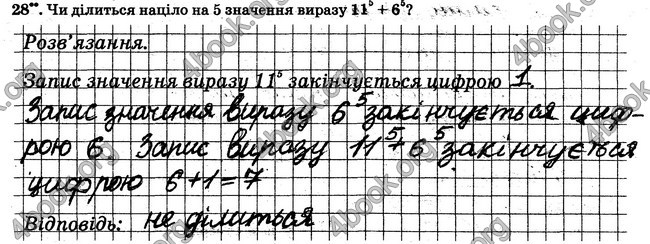 28**. Чи ділиться націло на 5 значення виразу 11⁵ + 6⁵?
Розв'язання.
Запис значення виразу 11⁵ закінчується цифрою 1.
Запис значення виразу 6⁵ закінчується циф-
рою 6. Запис виразу 11⁵+6⁵ закінчується
цифрою 6+1=7
Відповідь: не ділиться
4book.org